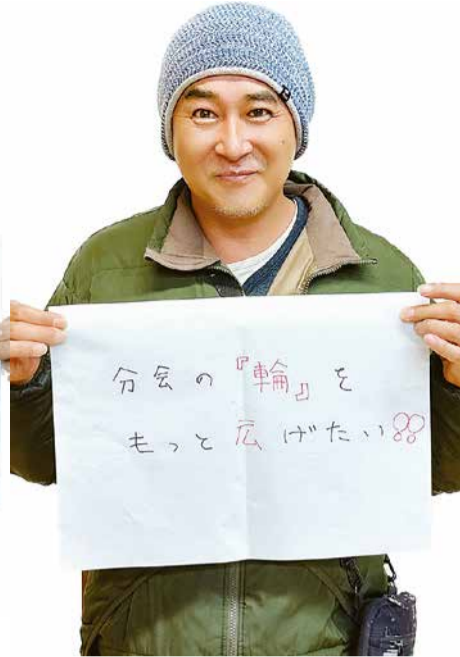 分会の『輪』を
もっと広げたい!!